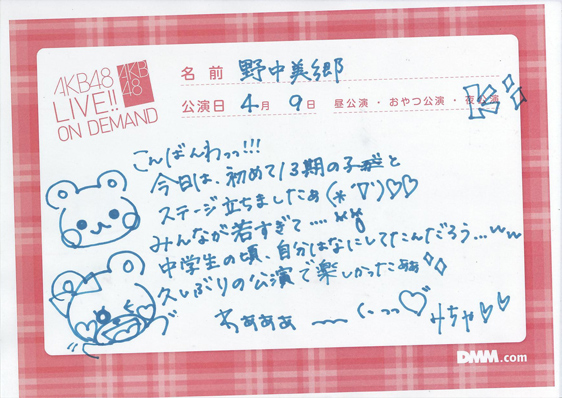 AKB48
LIVE!!
ON DEMAND
AKB
48
名前 野中美郷
公演日 4月 9日 昼公演・おやつ公演・夜公演
こんばんわっっ!!!
今日は、初めて13期の子達と
ステージ立ちましたぁ(*´∇`)♡♡
みんなが若すぎて....
中学生の頃、自分はなにしてたんだろう...ww
久しぶりの公演で楽しかったぁぁ
わぁぁぁ
みちゃ♡♡
DMM.com